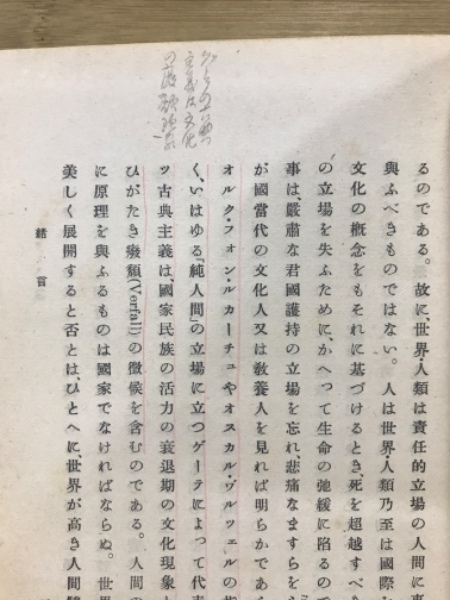 るのである。 故に、世界人類は責任的立場の人間に
與ふべきものではない。 人は世界人類乃至は國際
文化の概念をもそれに基づけるとき、死を超越すべ
の立場を失ふために、かへつて生命の弛緩に陷るので
事は、嚴肅な君國護持の立場を忘れ、悲痛なますらを
が國當代の文化人又は敎養人を見れば明らかであ
オルク・フォン・ルカーチュやオスカル・ヴルツェルの
く、いはゆる「純人間」の立場に立つゲーテによつて代
ツ古典主義は、國家民族の活力の衰退期の文化現象
ひがたき癈頽(Verfall)の徵候を含むのである。 人間の
に原理を與ふるものは國家でなければならぬ。 世
美しく展開すると否とは、ひとへに、世界が高き人間
結言